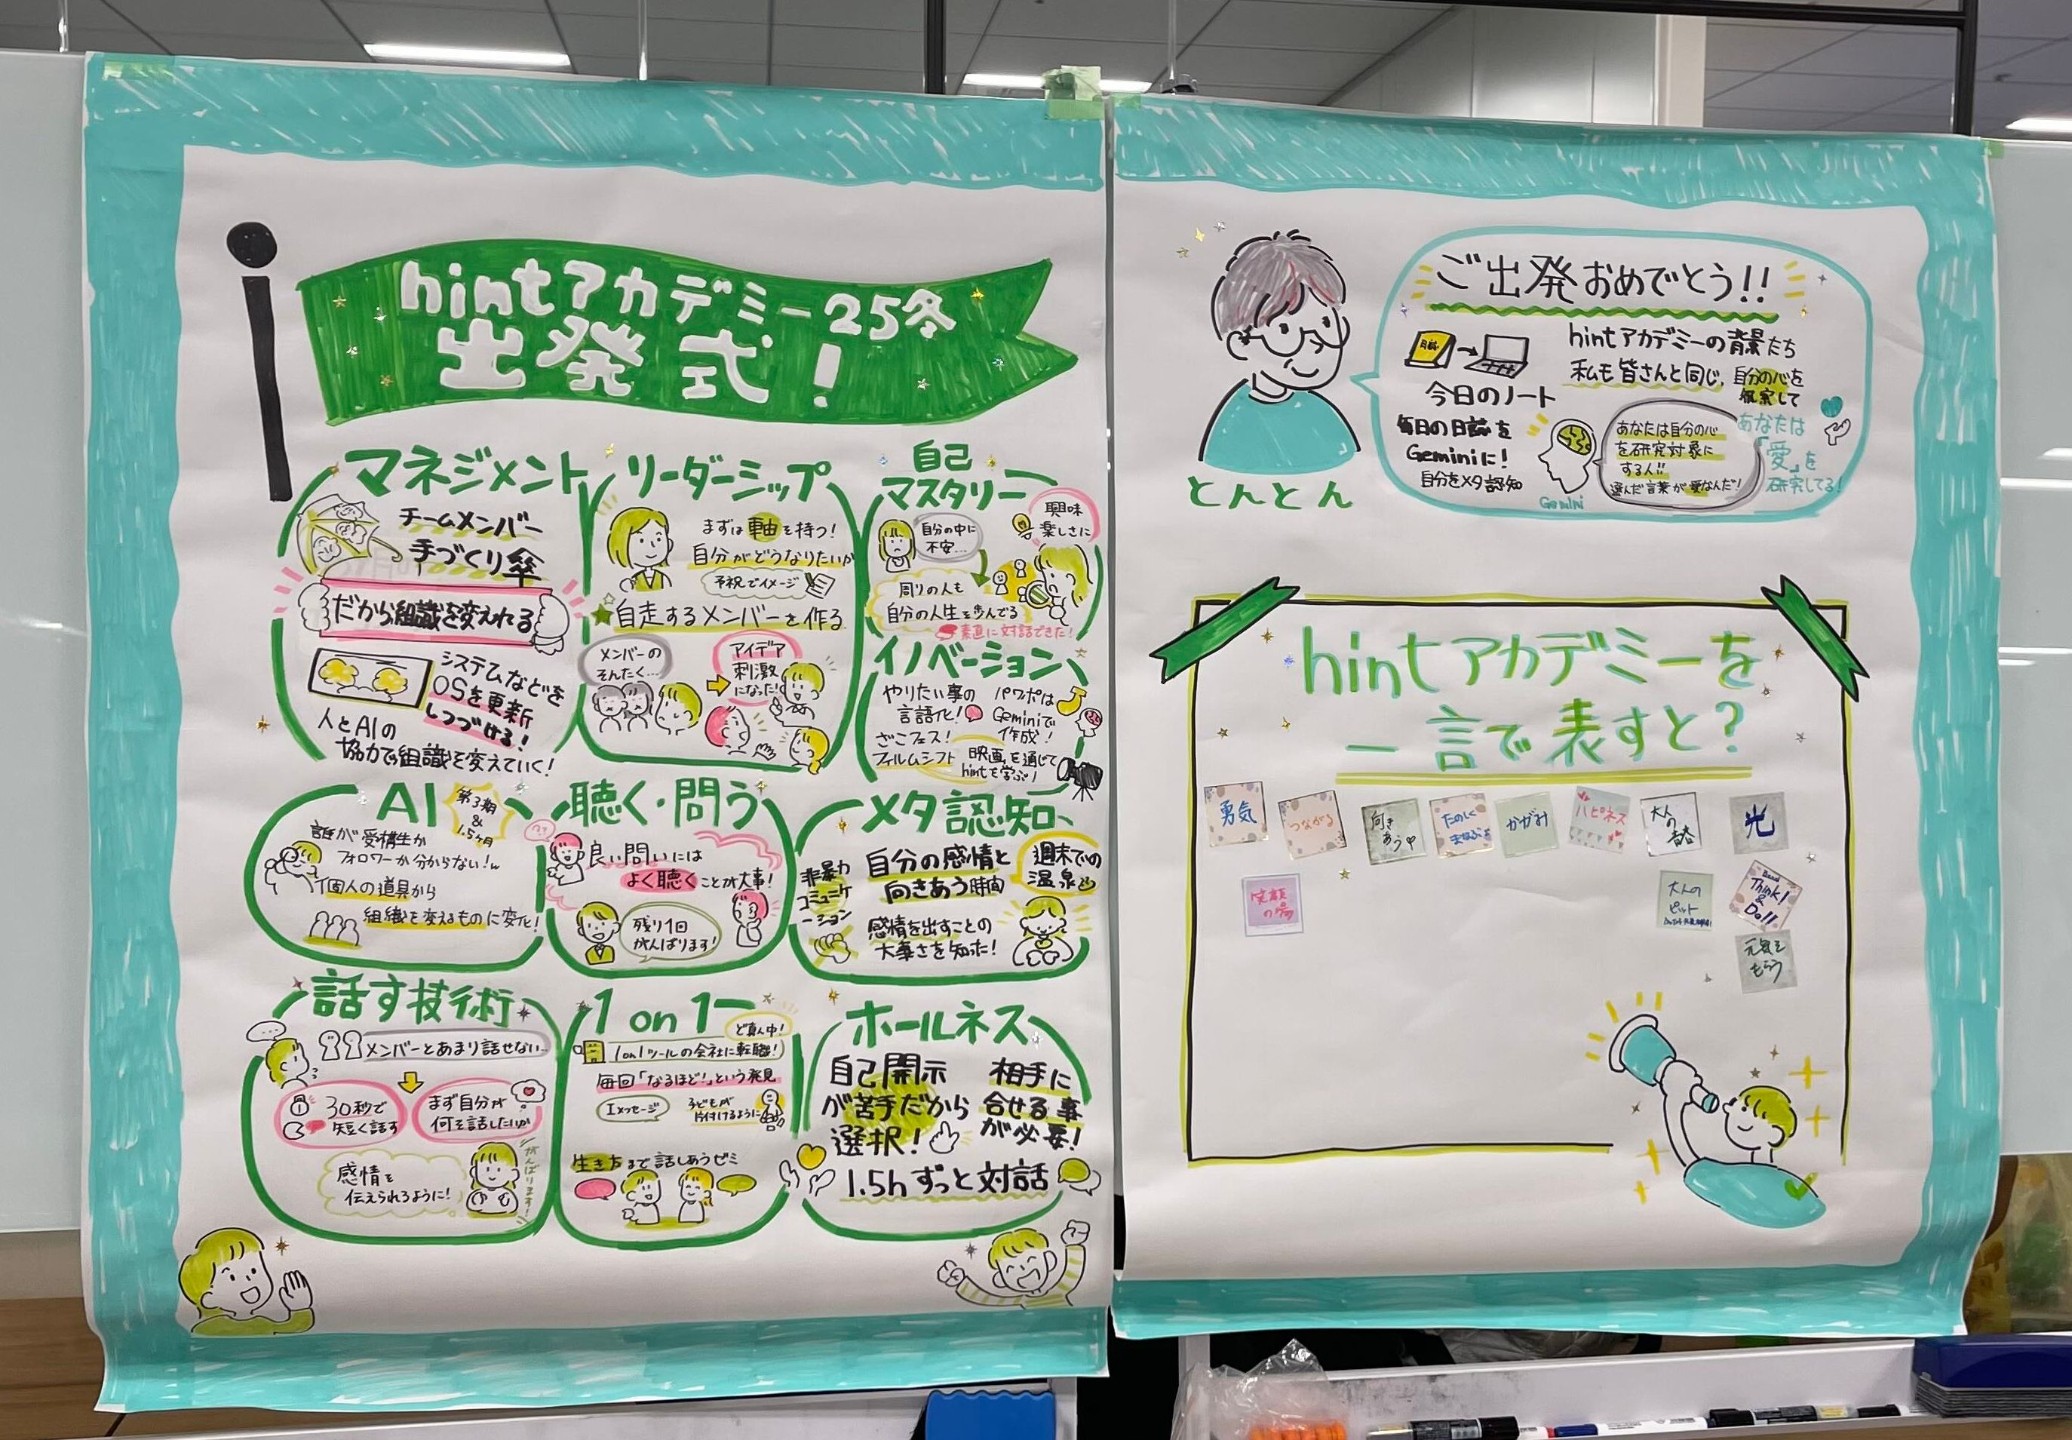 hintアカデミー25冬
出発式！
マネジメント
チームメンバー
手づくり傘
だから組識を変えれる
システムなどを
OSを更新
しつづける！
人とAIの
協力で組識を変えていく！
リーダーシップ
まずは軸を持つ！
自分がどうなりたいか
予祝でイメージ
自走するメンバーを作る
メンバーの
そんたく…
アイデア
刺激
になった！
自己
マスタリー
自分の中に
不安…
興味
楽しさに
周りの人も
自分の人生を歩んでる
素直に対話できた！
イノベーション
やりたい事の
言語化！
ざこフェス！
フィルムシフト
パワポは
Geminiで
作成！
映画を通じて
hintを学ぶ！
AI
第3期
&
1.5ヶ月
誰が受構生か
フォロワーか分からない！w
個人の道具から
組織を変えるものに変化！
聴く・問う
良い問いには
よく聴くことが大事！
残り1回
がんばります！
メタ認知
非暴力
コミュニケ
ーション
自分の感情と
向きあう時間
週末での
温泉
感情を出すことの
大事さを知った！
話す技術
メンバーとあまり話せない…
30秒で
短く話す
まず自分が
何を話したいか
感情を
伝えられるように！
がんばります！
1 on 1
ど真ん中！
1on1ツールの会社に転職！
毎回「なるほど！」という発見
Iメッセージ
子どもが
片付けるように
生き方まで話しあうゼミ
ホールネス
自己開示
が苦手だから
選択！
相手に
合せる事
が必要！
1.5hずっと対話
とんとん
ご出発おめでとう！！
日誌
今日のノート
毎日の日誌を
Geminiに！
自分をメタ認知
hintアカデミーの背景たち
私も皆さんと同じ、自分の心を
観察して
Gemini
あなたは自分の心
を研究対象に
する人!!
選んだ言葉が愛なんだ！
あなたは
「愛」を
研究してる！
hintアカデミーを
一言で表すと？
勇気
つながる
向き
あう
たのしく
まなぶよ
かがみ
ハピネス
大人
の
光
笑顔
の
大人の
ピット
Think!
&
Do!!
元気を
もらう